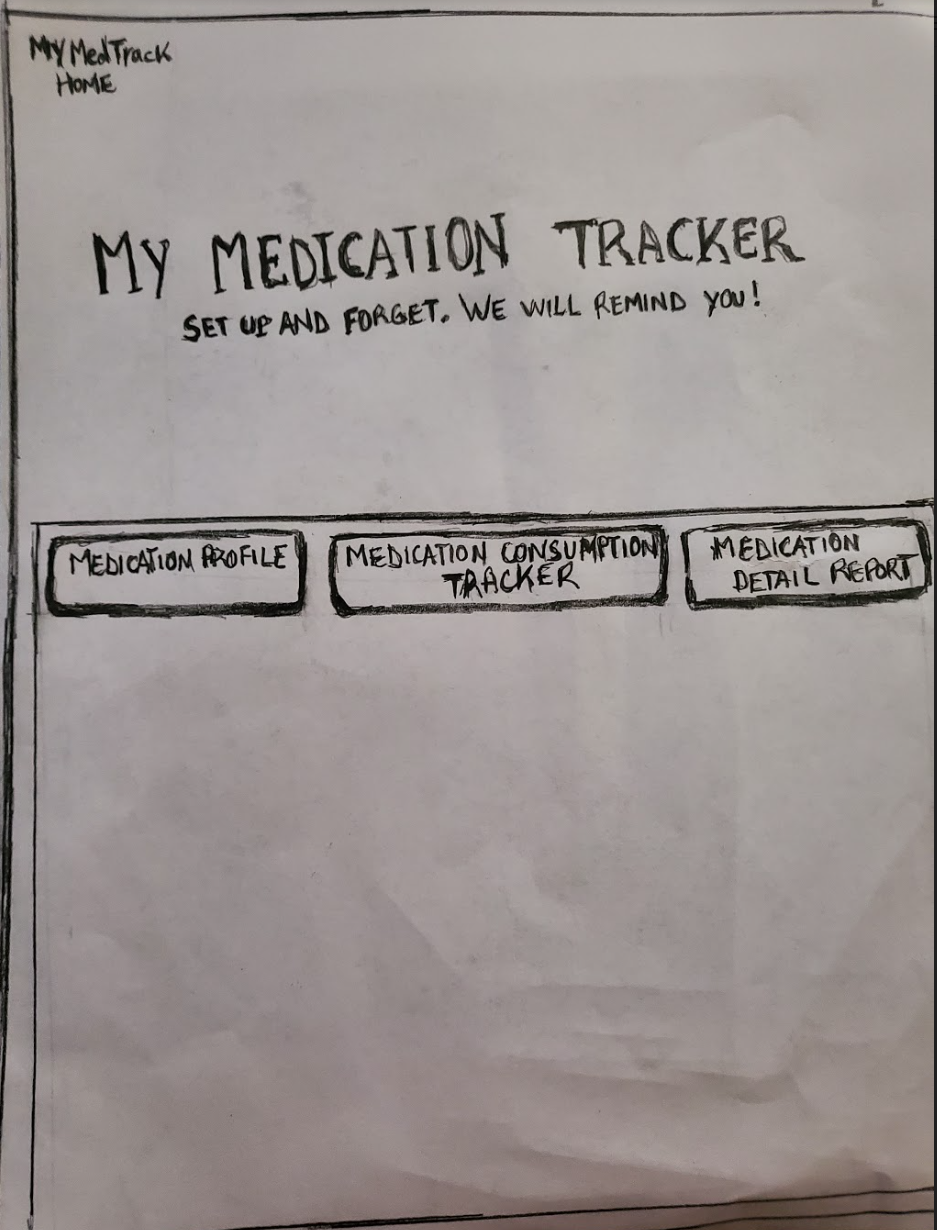 MyMedTrack
HOME
MY MEDICATION TRACKER
SET UP AND FORGET. WE WILL REMIND YOU!
MEDICATION PROFILE
MEDICATION CONSUMPTION
TRACKER
MEDICATION
DETAIL REPORT